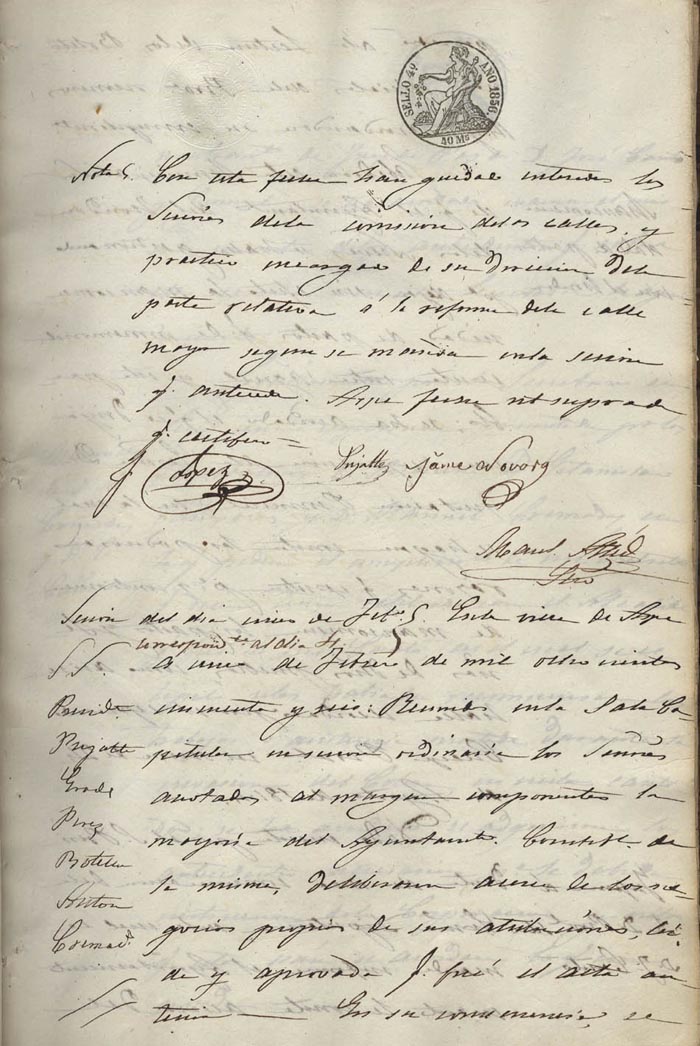 SELLO 4º AÑO 1856
40 Ms
Nota. Con esta fecha han quedado enterados los
Señores dela comision delas calles, y
practico encargado de su direccion dela
parte relativa á la reforma dela calle
mayor segun se mandó enla sesion
q. antecede. Aspe fecha ut supra de
q. certifico =
Lopez
Pujalte
Jaime
Manl.
Srio
Sesion del dia cinco de Febº. En la villa de Aspe
correspondte al dia
SS. A cinco de Febrero de mil ochocientos
Presidte cincuenta y seis: Reunidos enla Sala Ca-
Pujalte pitular en sesion ordinaria los Señores
anotados al margen componentes la
Perez mayoria del Ayuntamto. Constitl. de
Botella la misma, deliberaron acerca de los ne-
Anton gocios propios de sus atribuciones, lei-
Cremads da y aprovada q. fué el acta an-
terior — En su consecuencia, se